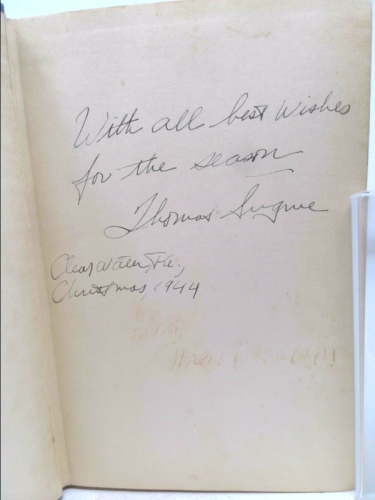 With all best wishes
for the season
Thomas Sugrue
Clearwater, Fla.,
Christmas, 1944